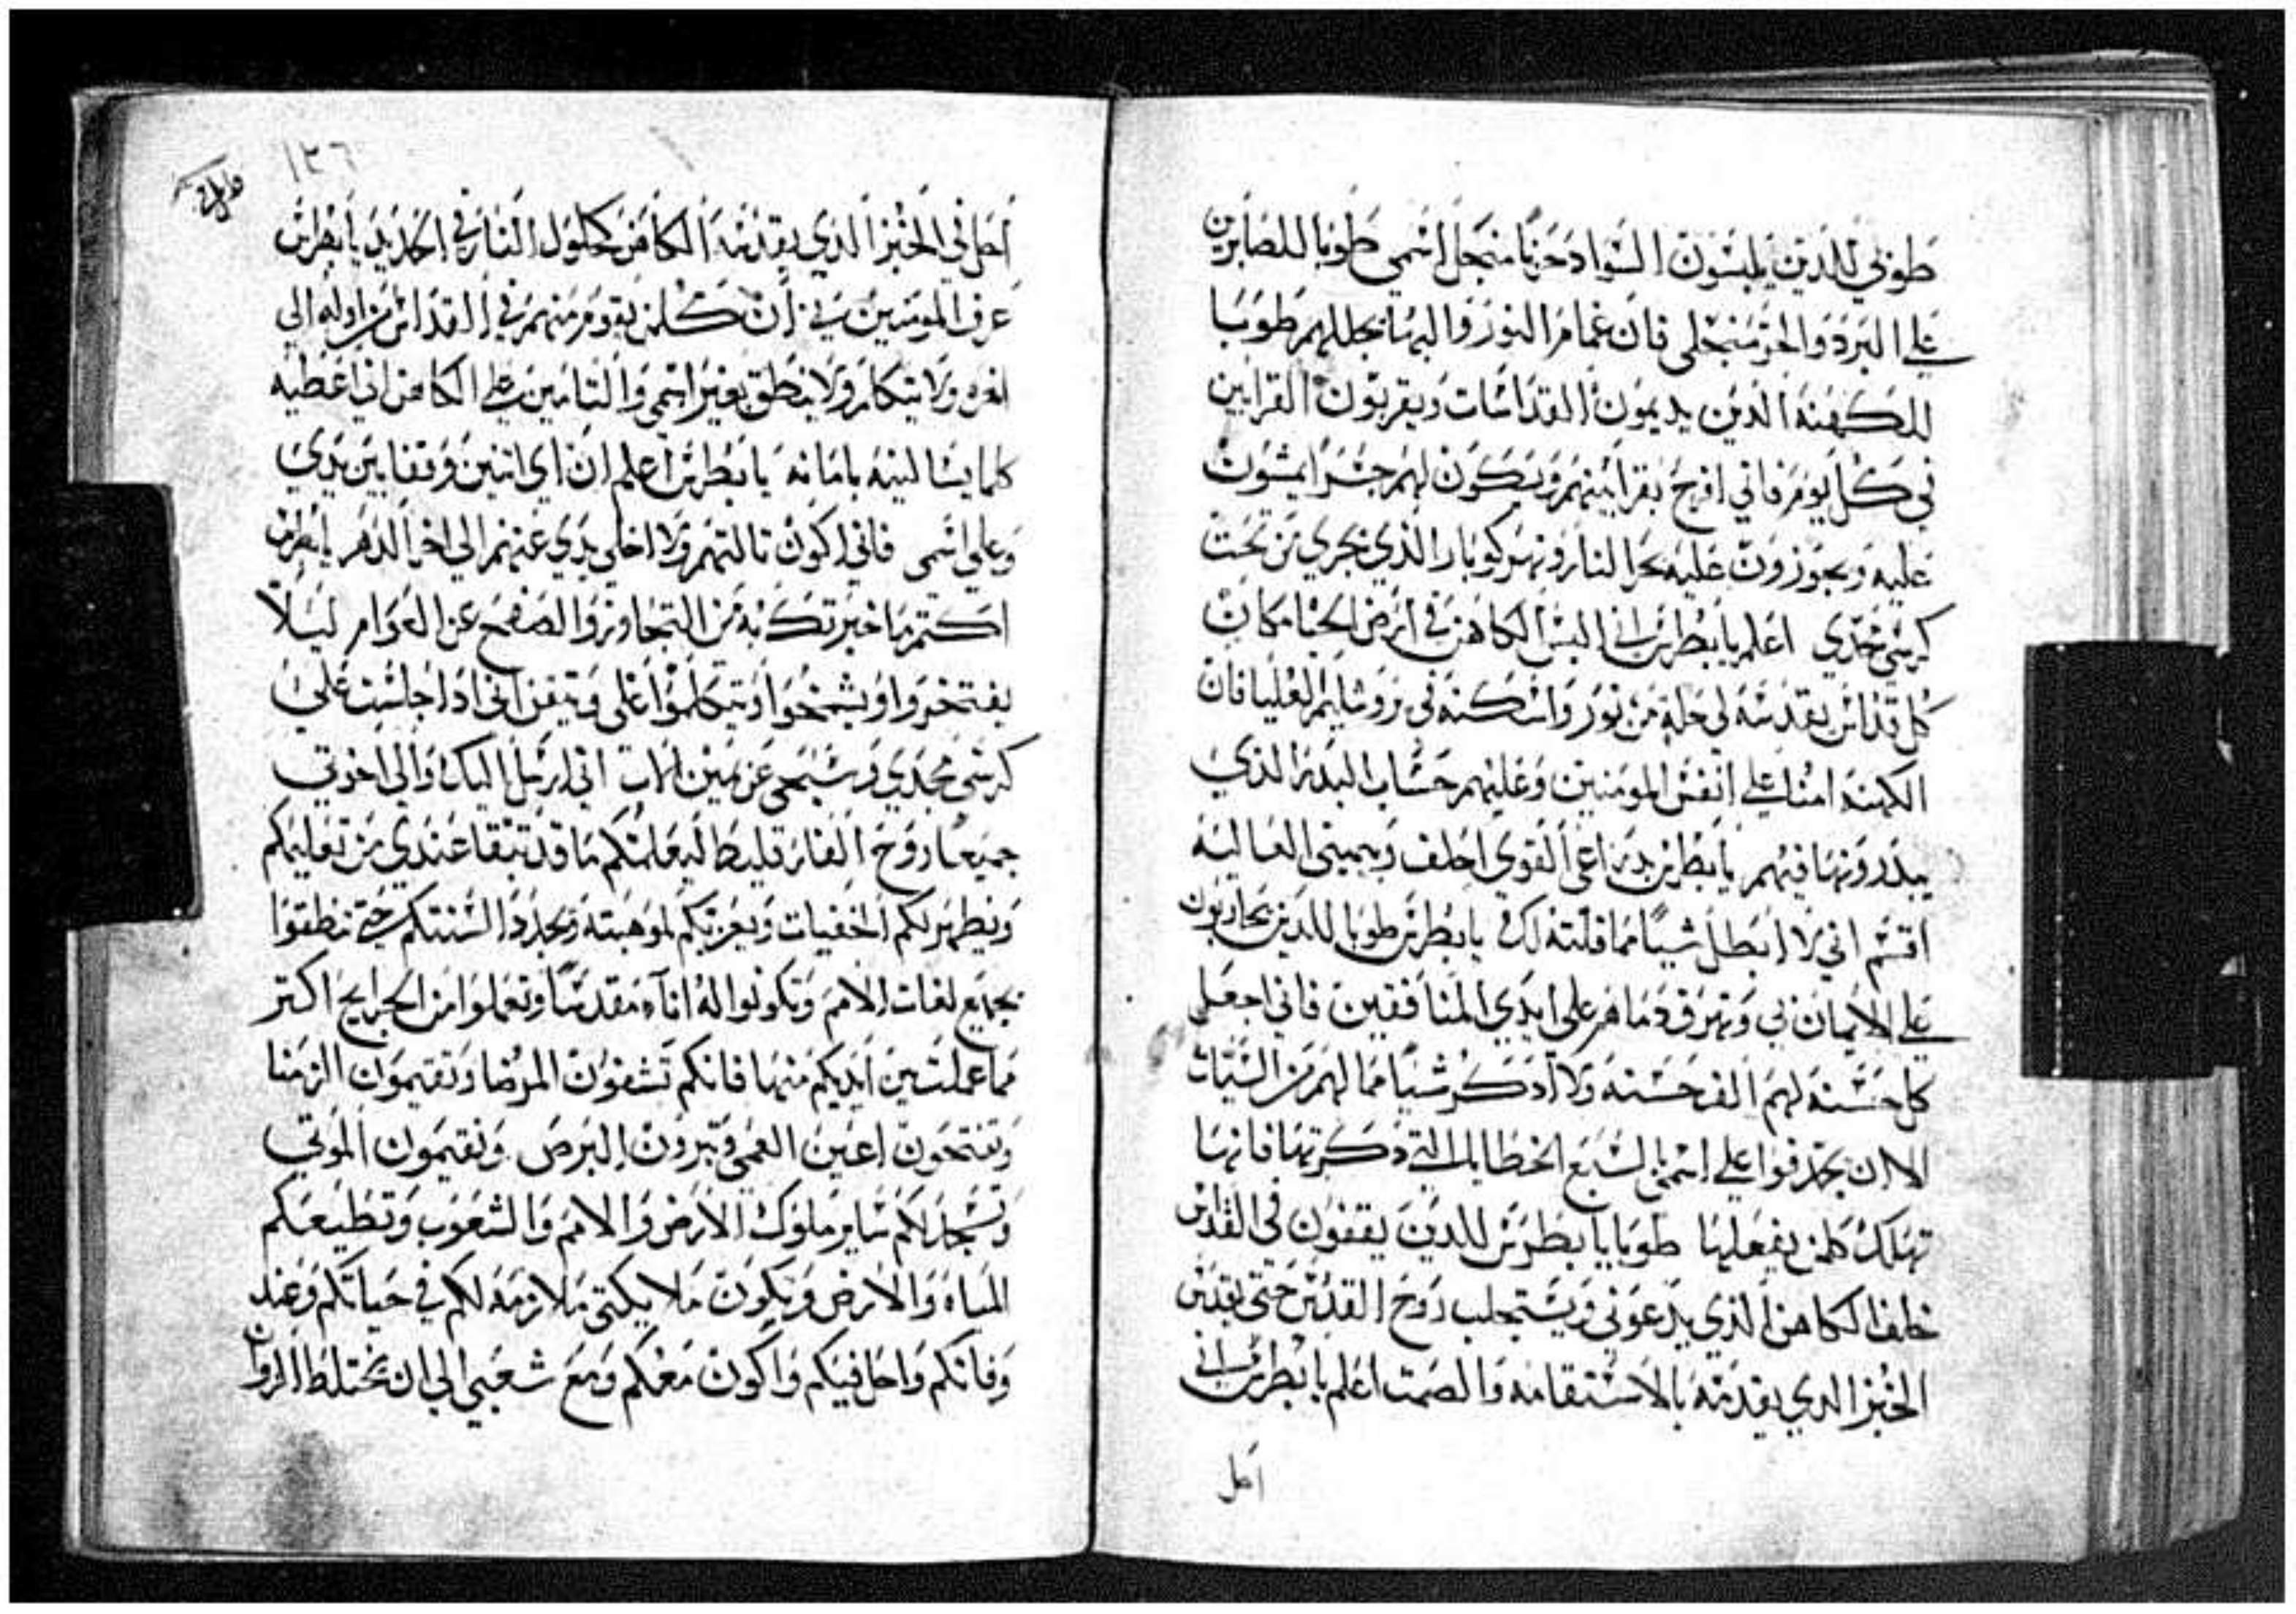 طوبي للدين يلبسون السواد حزنا منجل اسمي طوبا للصابرين
علي البرد والحر منجلي فان غمام النور والبها تجللهم طوبا
للكهنه الدين يديمون القداسات ويقربون القرابين
في كل يوم فاني افرح بقرابينهم ويكون لهم جسرا يمشون
عليه ويجوزون عليه بحر النار ونهر كوبار الذي يجري من تحت
كرسي مجدي اعلم يا بطرس اني البس الكاهن في ارض الحيا مكان
كل قداس يقدسه لي حلة من نور واسكنه في يروشاليم العليا فان
الكهنه امنا علي انفس المومنين وعليهم حساب البدر الذي
يبدرونها فيهم يا بطرس بدراعي القوي احلف وبيميني العاليه
اقسم اني لا ابطل شيا مما قلته لك يا بطرس طوبا للدين يحاربون
علي الايمان بي وتهرق دماهم علي ايدي المنافقين فاني اجعل
كل حسنه لهم الف حسنه ولا ادكر شيا مما لهم من السيات
الا ان يجدفوا علي اسمي السبع الخطايا التي دكرتها فانها
تهلك كلمن يفعلها طوبا يا بطرس للدين يقفون في القداس
خلف الكاهن الذي يدعوني ويستجلب روح القدس حتى يقدس
الخبز الدي يقدمه بالاستقامه والصمت اعلم يا بطرس اني
احل
١٣٦
احل في الخبز الدي يقدسه الكاهن كحلول النار في الحديد يا بطرس
عرف المومنين بي ان كلمن يقوم منهم في القداس من اوله الي
اخره ولا يتكلم ولا ينطق بغير اسمي والتامين علي الكاهن اني اعطيه
كلما يسالنيه بامانه يا بطرس اعلم ان اي اتنين وقفا بين يدي
وعلي اسمي فاني اكون تالتهم ولا اخلي يدي عنهم الي اخر الدهر يا بطرس
اكتم ما خبرتك به من التجاوز والصفح عن العوام ليلا
يفتخروا ويشمخوا ويتكلموا علي وتيقن اني ادا جلست علي
كرسي مجدي وسبحي عن يمين الاب اني ارسل اليك والي اخوتي
جميعا روح الفارقليط ليعلمكم ما قد تبقا عندي من تعليمكم
ويظهر لكم الخفيات ويعزيكم لموهبته ويجدد السنتكم حتى تنطقوا
بجميع لغات الامم وتكونوا له اناء مقدسا وتعملوا من الجرايح اكتر
مما عملت بين ايديكم منها فانكم تشفون المرضا وتقيمون الزمنا
وتفتحون اعين العمي وتبرون البرص وتقيمون الموتي
وتسجد لكم ساير ملوك الارض والامم والشعوب وتطيعكم
المياه والارض وتكون ملايكتي ملازمه لكم في حياتكم وعند
وفاتكم واحل فيكم واكون معكم ومع شعبي الي ان تختلط الزوان